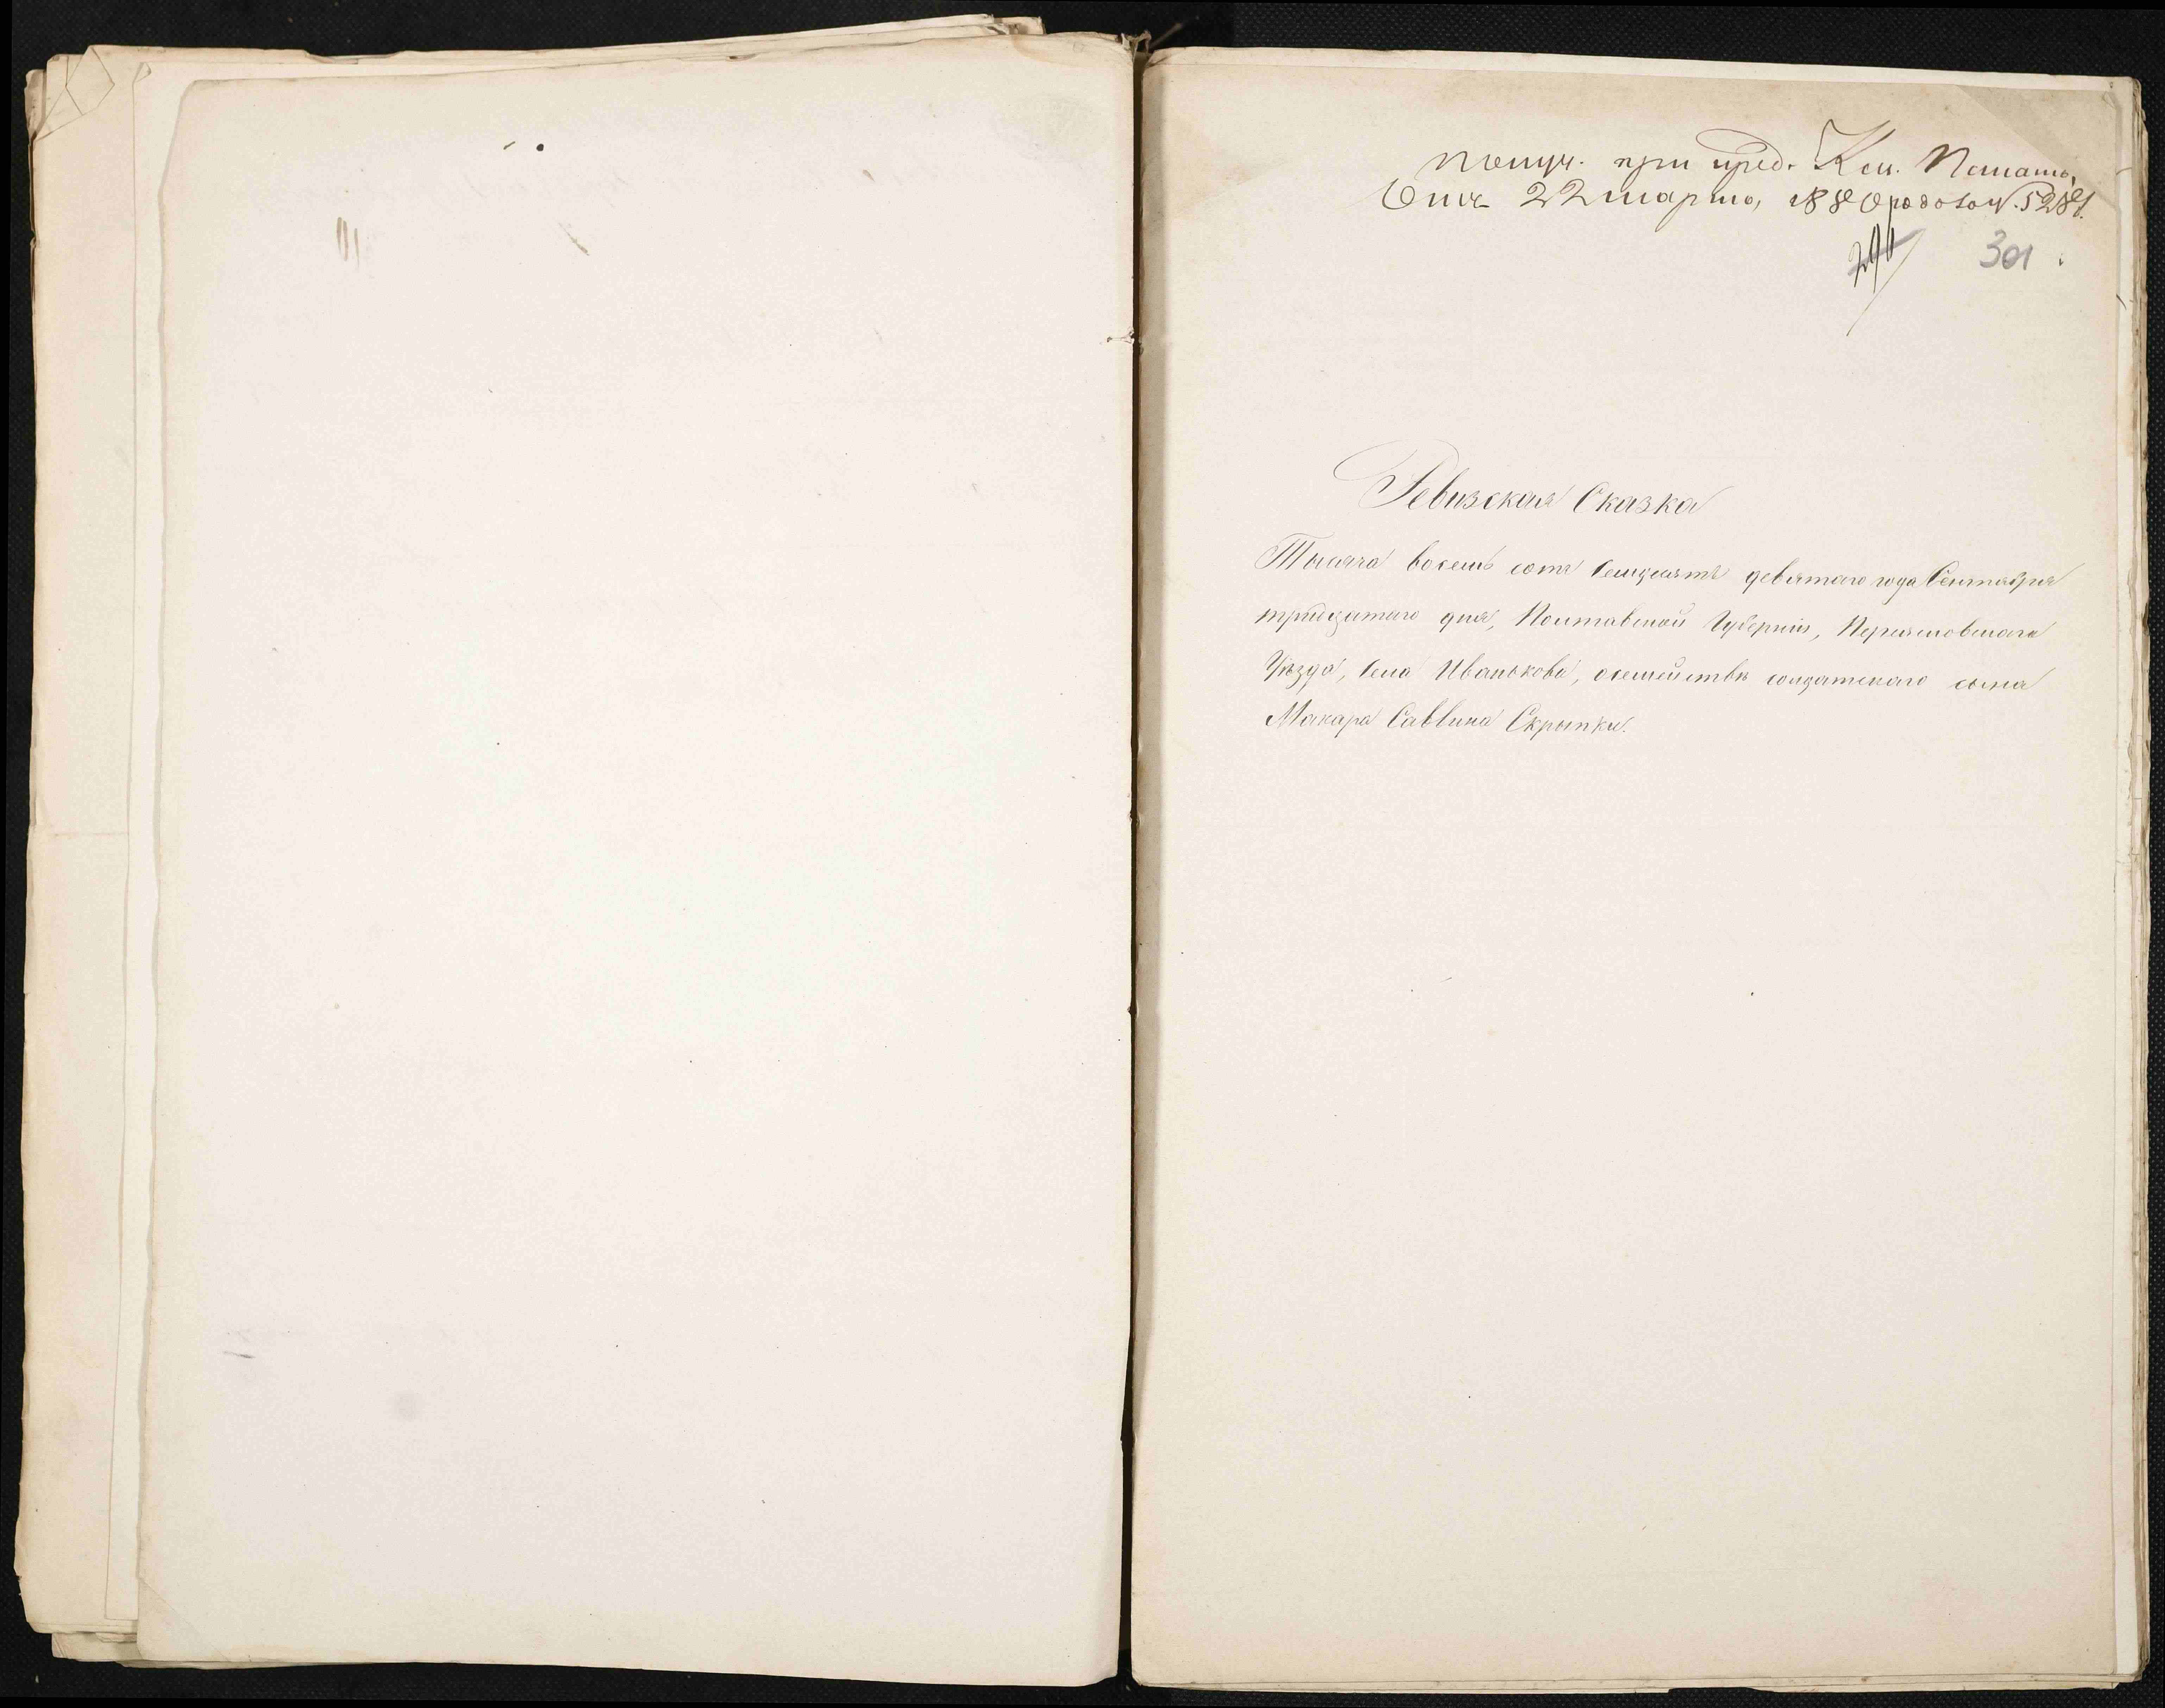 Получ. при пред. Каз. Палаты,
отъ 22 марта, 1880 года за №
290 301
Ревизская Сказка
Тысяча восемь сотъ семдесятъ девятаго года Сентября
тридцатаго дня, Полтавской Губерніи, Переяславскаго
Уѣзда, села Иванькова, осемействѣ солдатскаго сына
Макара Саввина Скрыпки.